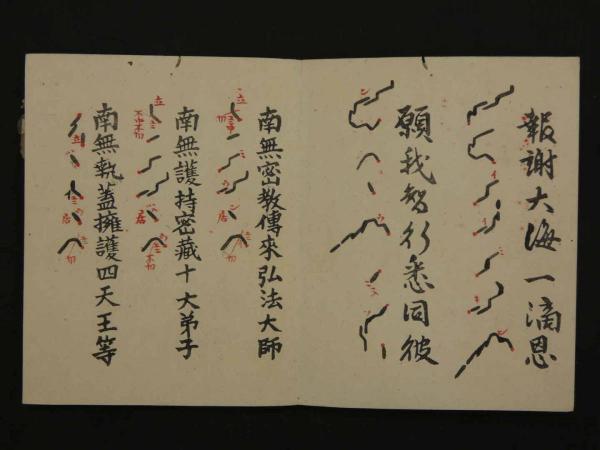 報謝大海一滴恩
願我智行悉同彼
南無密教傳來弘法大師
南無護持密藏十大弟子
南無執蓋擁護四天王等